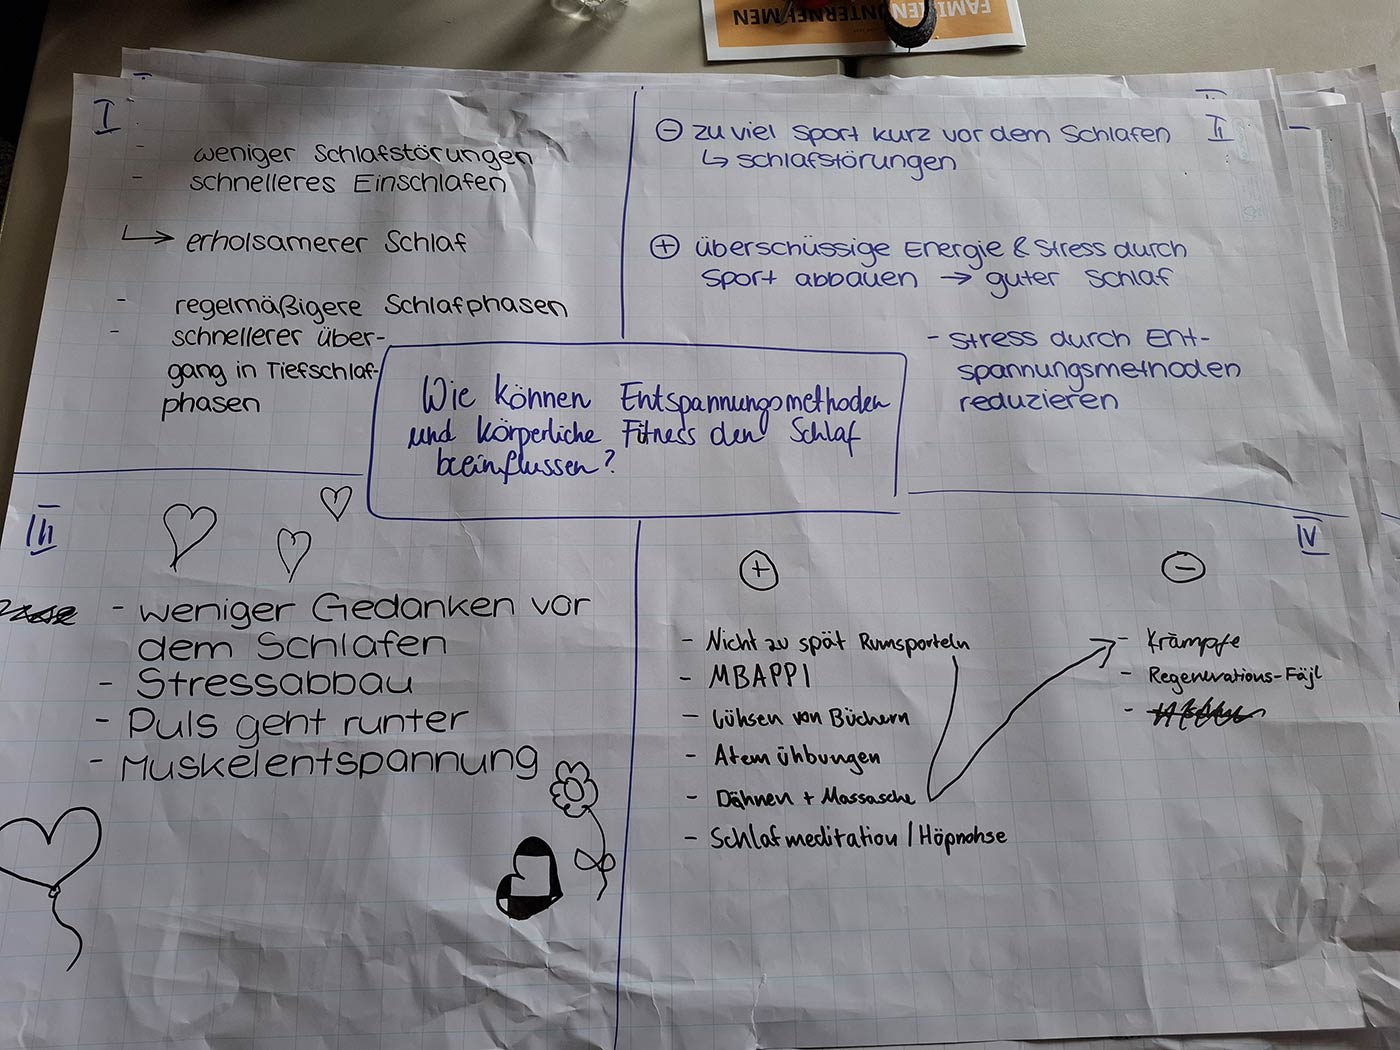 FAMILIENUNTERNEHMEN
I
- weniger Schlafstörungen
- schnelleres Einschlafen
↳ erholsamerer Schlaf
- regelmäßigere Schlafphasen
- schnellerer über-
gang in Tiefschlaf-
phasen
II
⊖ zu viel Sport kurz vor dem Schlafen
↳ schlafstörungen
⊕ überschüssige Energie & Stress durch
Sport abbauen → guter Schlaf
- Stress durch Ent-
spannungsmethoden
reduzieren
Wie können Entspannungsmethoden
und körperliche Fitness den Schlaf
beeinflussen?
III
- weniger Gedanken vor
dem Schlafen
- Stressabbau
- Puls geht runter
- Muskelentspannung
IV
⊕
- Nicht zu spät Rumsporteln
- MBAPPI
- Lühsen von Büchern
- Atem ühbungen
- Dähnen + Massasche
- Schlafmeditation / Höpnohse
⊖
- Krämpfe
- Regenerations-Fäjl